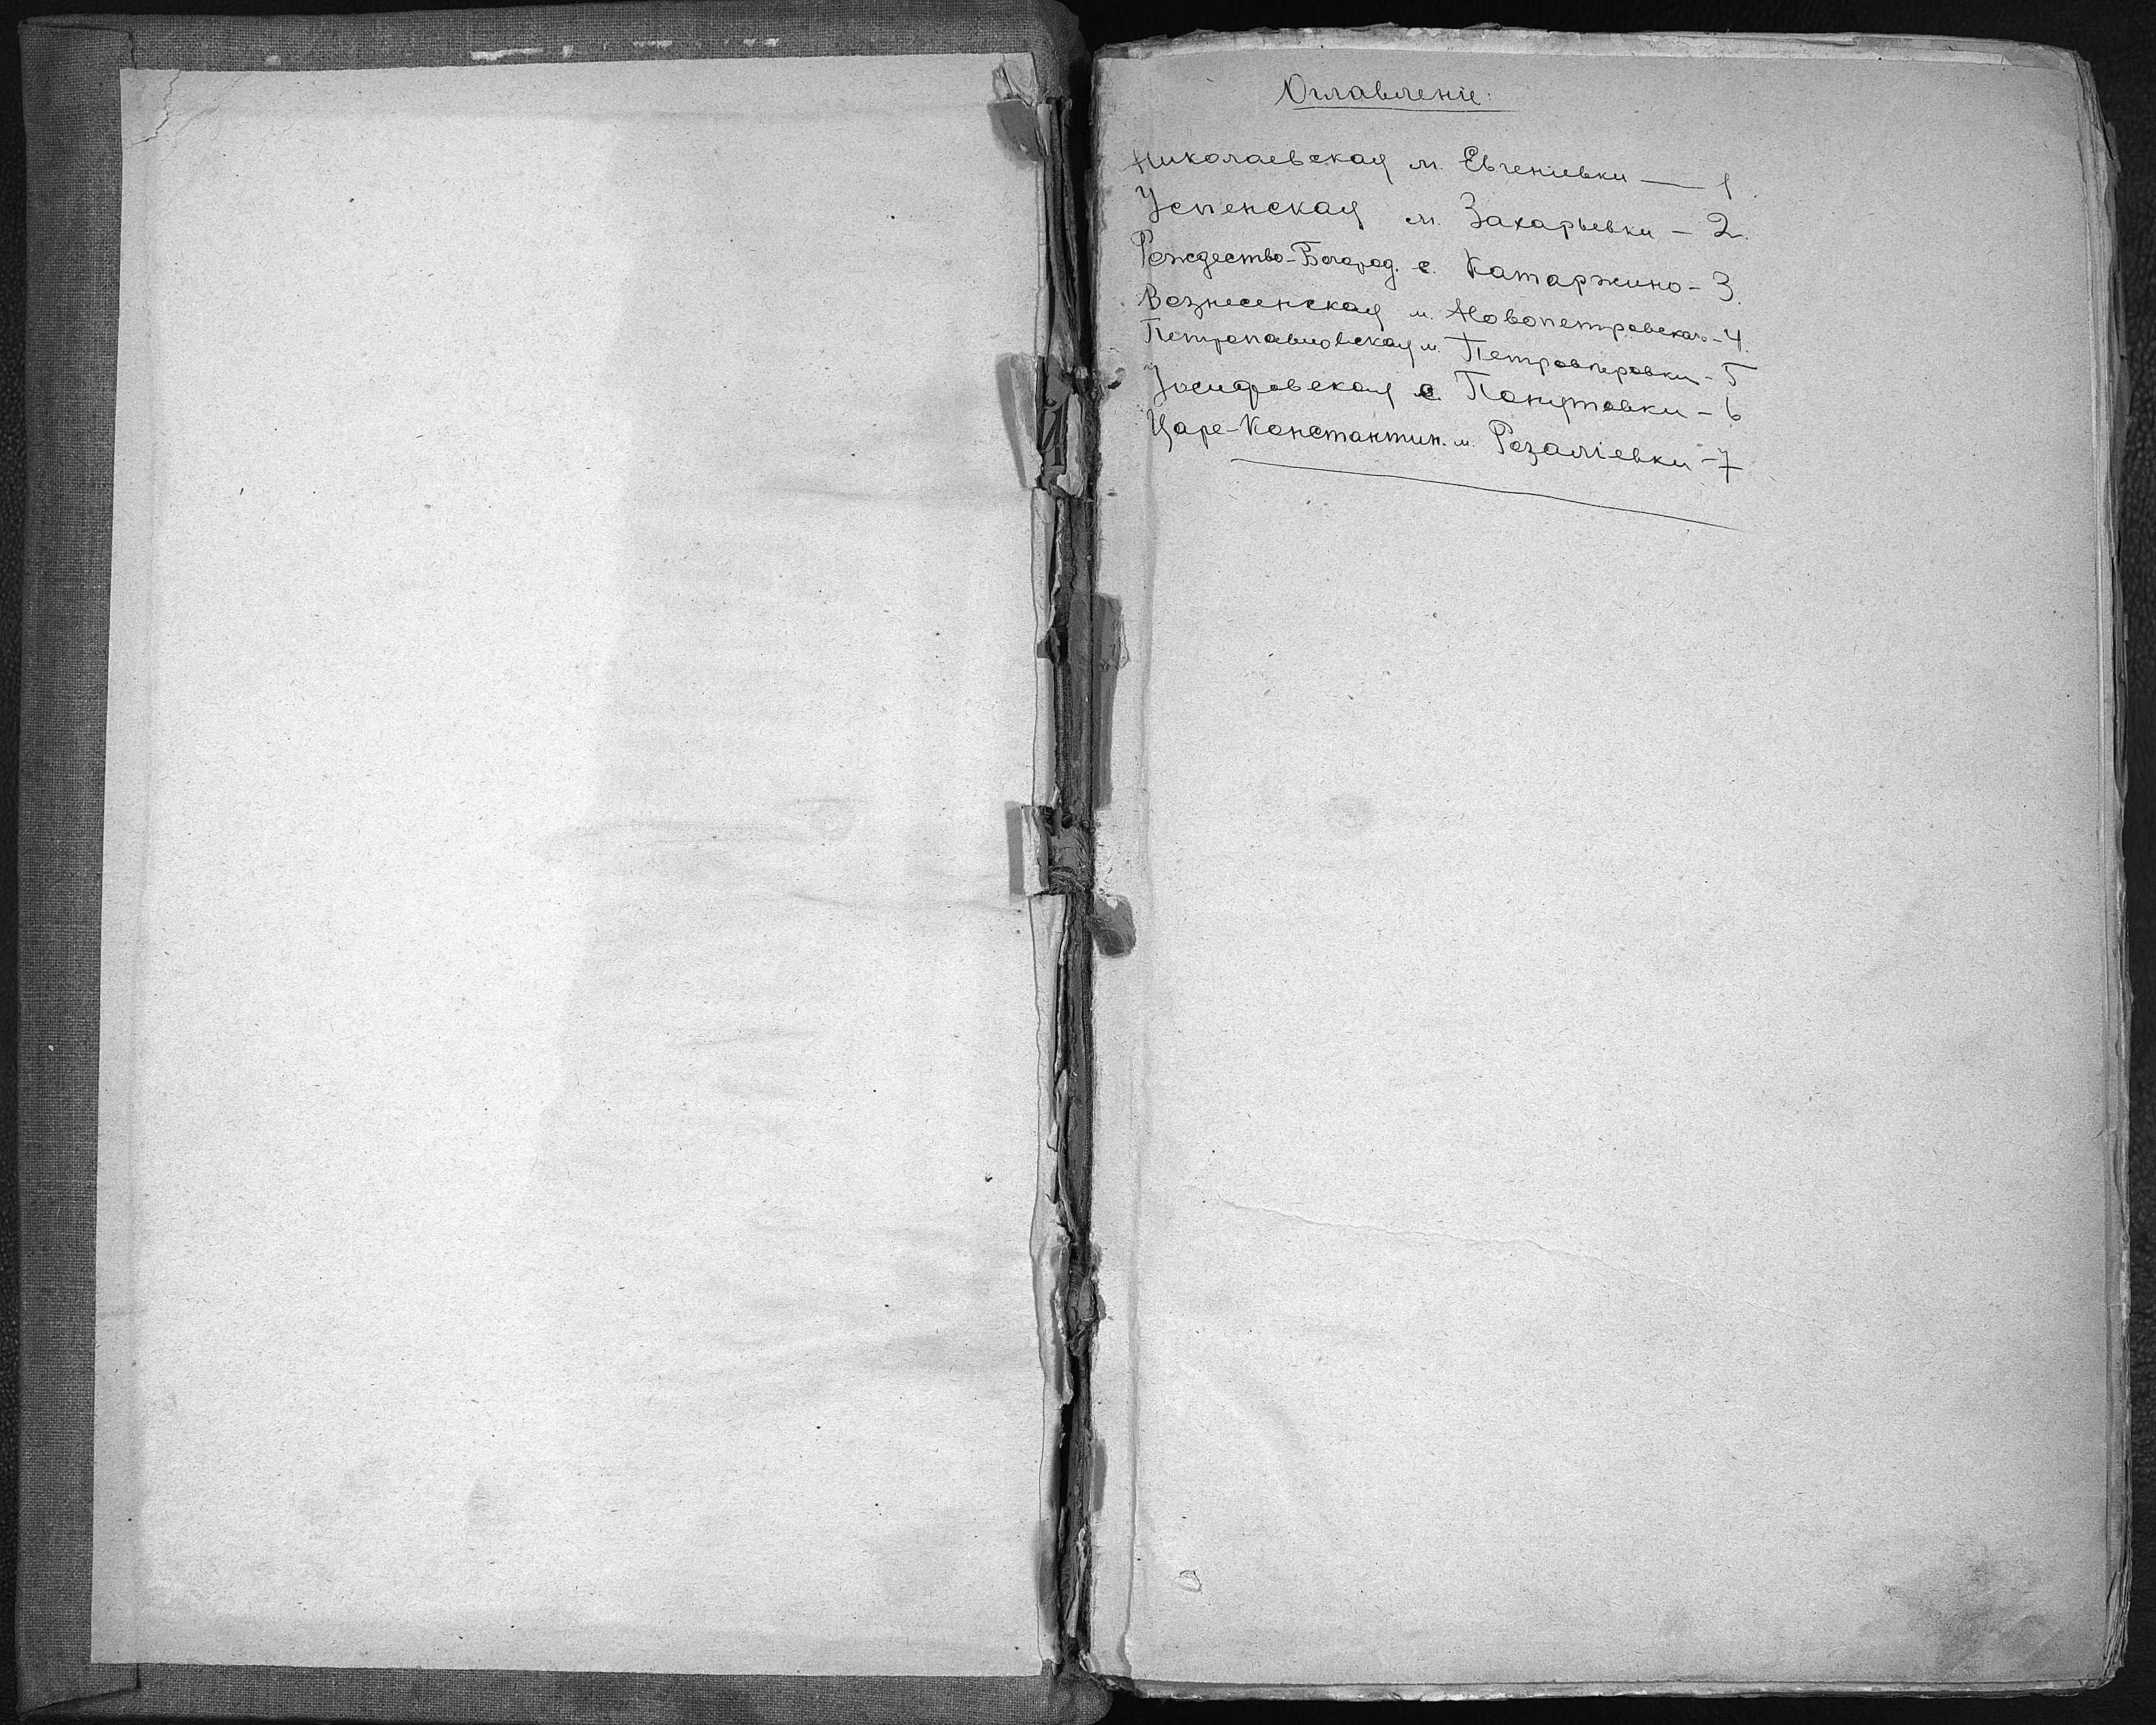 Оглавленіе:
Николаевская м. Евгеніевки — 1
Успенская м. Захарьевки — 2.
Рождество-Богород. с. Катаржино - 3.
Вознесенская м. Новопетровскаго - 4.
Петропавловская м. Петровѣровки - 5
Іосифовская с. Покутовки - 6
Царе-Константин. м. Розаліевки - 7